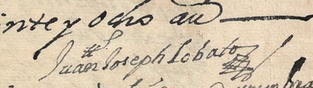 inte y ocho au
Juan Joseph Lobato